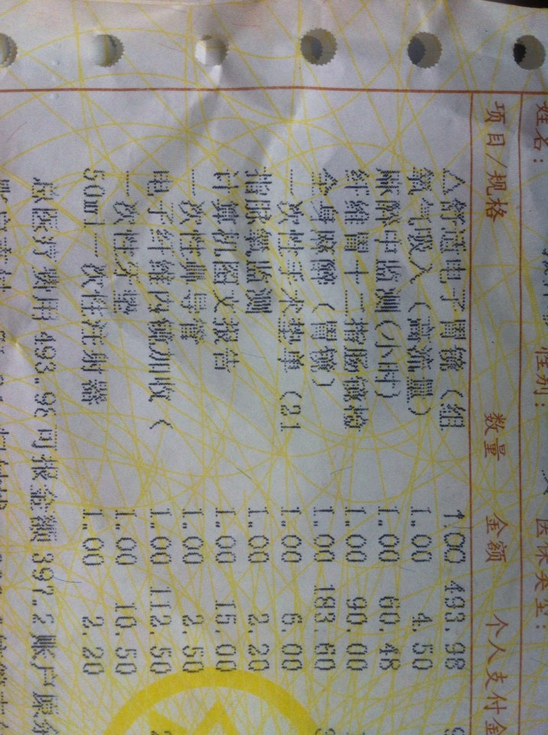 姓名： 性别： 医保类型：
项目/规格 数量 金额 个人支付金
△舒适电子胃镜（组 1.00 493.98
氧气吸入（高流量） 1.00 4.50
麻醉中监测（小时） 1.00 60.48
纤维胃十二指肠镜检 1.00 90.00
全身麻醉（胃镜） 1.00 183.60
一次性手术垫单（31 1.00 6.00
指脉氧监测 1.00 2.20
计算机图文报告 1.00 15.00
一次性鼻导管 1.00 2.50
电子纤维内镜加收（ 1.00 112.50
一次性牙垫 1.00 10.50
50ml一次性注射器 1.00 2.20
总医疗费用 493.98 可报金额 397.2 账户原余